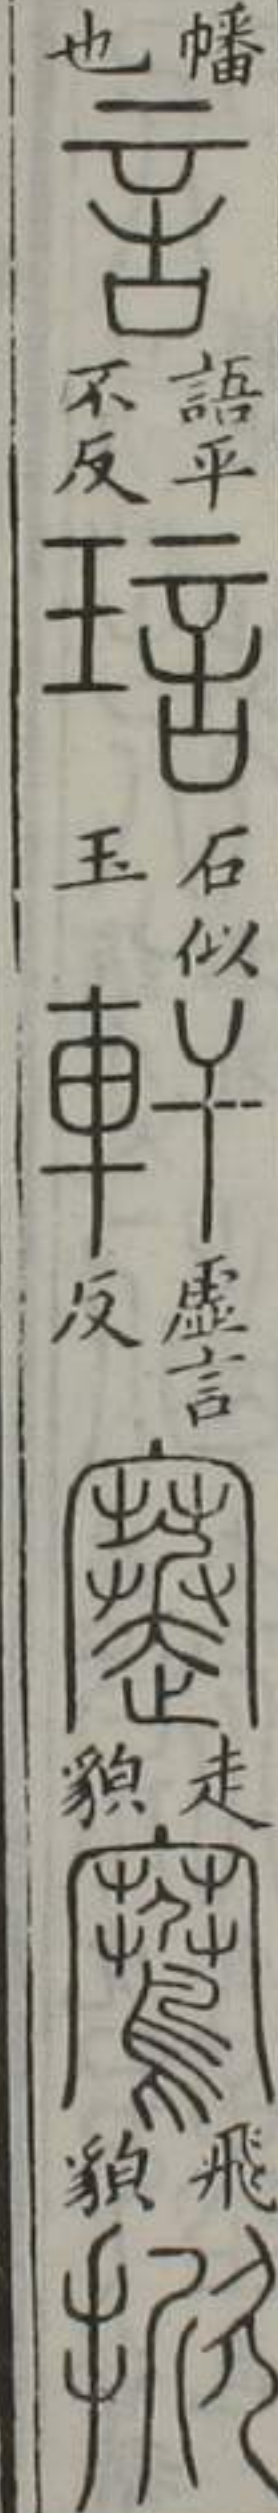 幡也言語平不反琂石似玉軒虛言反𧽐走貌鶱飛貌掀